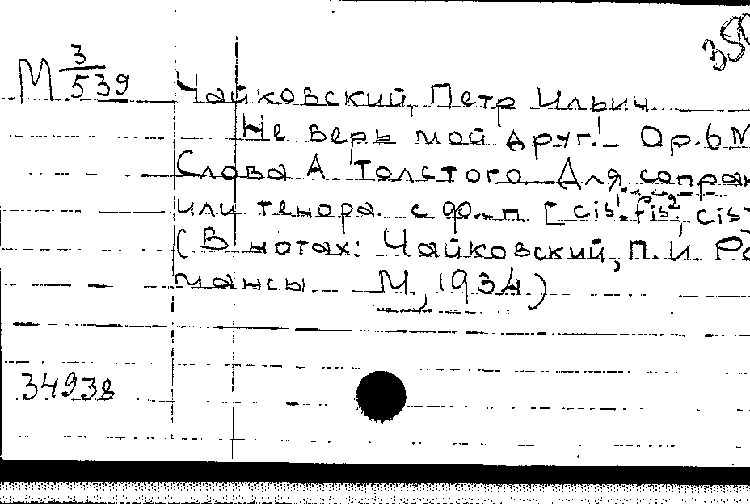 М 3/539
Чайковский, Петр Ильич
Не верь мой друг! Op. 6 N
Слова А Толстого Для сопран
или тенора с ф.-п. [cis¹-fis², cis
(В нотах: Чайковский, П. И. Ро
мансы М., 1934.)
34938